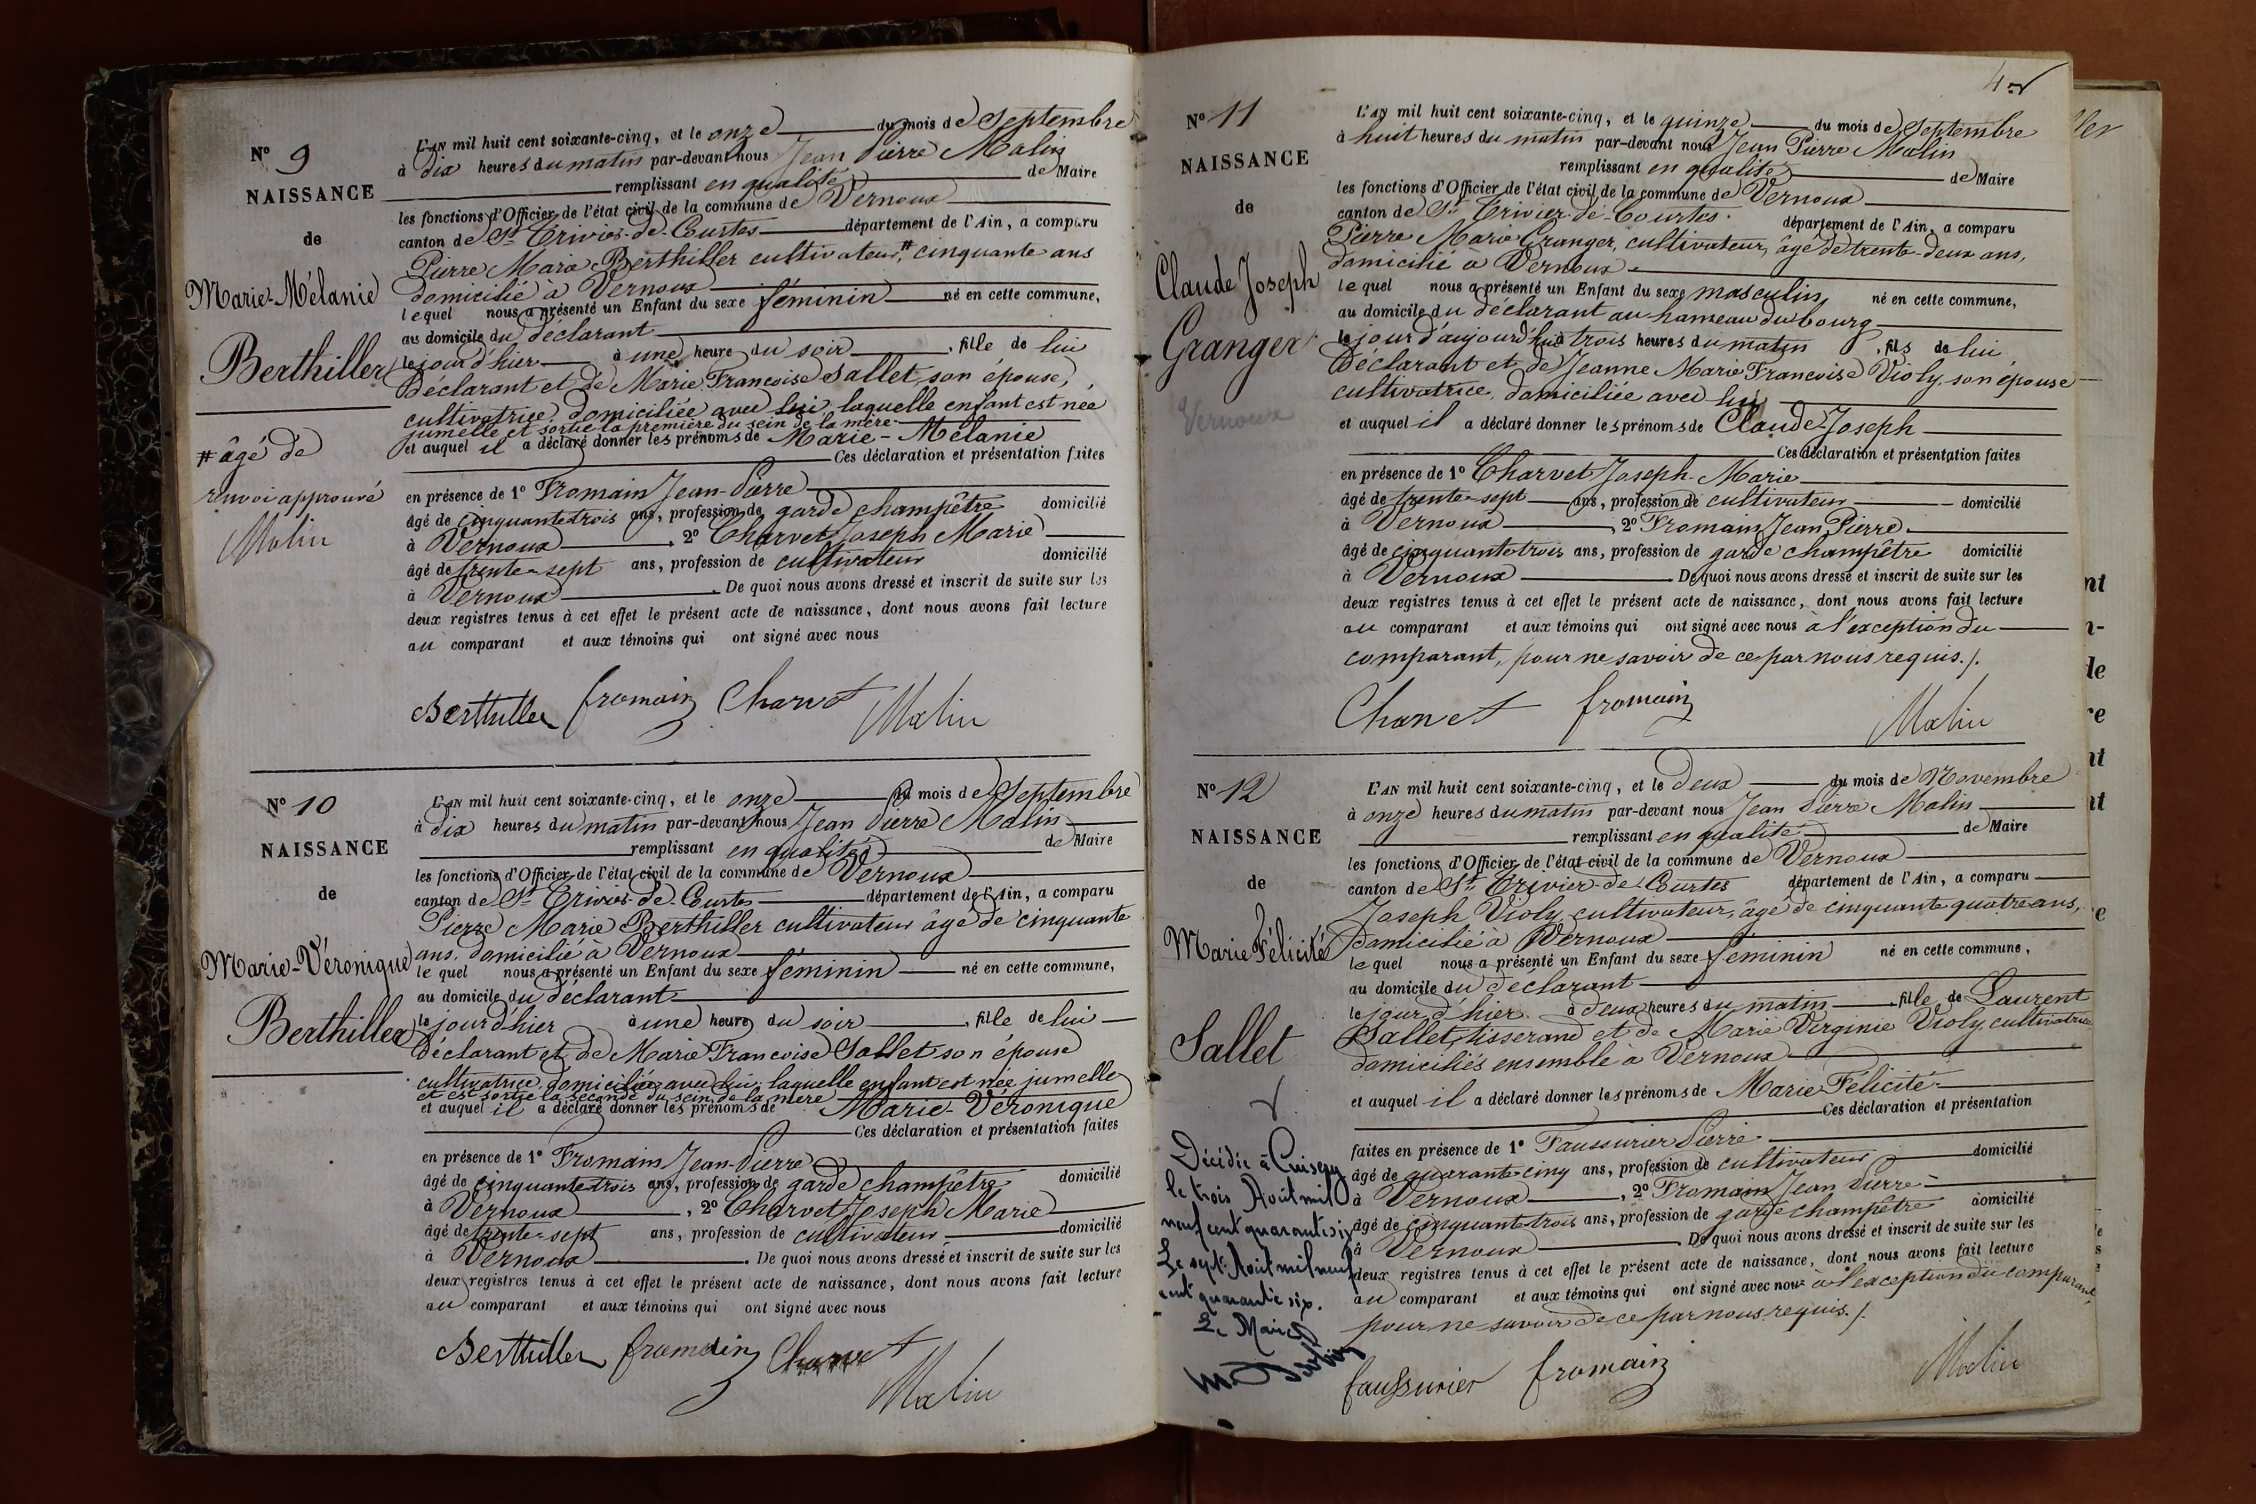 Nº 9
NAISSANCE
de
Marie-Mélanie
Berthiller
# âgé de
renvoi approuvé
Malin
L'AN mil huit cent soixante-cinq, et le onze du mois de Septembre
à dix heures du matin par-devant nous Jean Pierre Malin
remplissant en qualité de Maire
les fonctions d'Officier de l'état civil de la commune de Vernoux
canton de St Trivier-de-Courtes département de l'Ain, a comparu
Pierre Marie Berthiller cultivateur # cinquante ans
domicilié à Vernoux
lequel nous a présenté un Enfant du sexe féminin né en cette commune,
au domicile du déclarant
le jour d'hier à une heure du soir, fille de lui
Déclarant et de Marie Françoise Sallet, son épouse,
cultivatrice, domiciliée avec lui, laquelle enfant est née
jumelle et sortie la première du sein de la mère
et auquel il a déclaré donner les prénoms de Marie-Mélanie
Ces déclaration et présentation faites
en présence de 1º Fromain Jean-Pierre
âgé de cinquante trois ans, profession de garde champêtre domicilié
à Vernoux, 2º Charvet Joseph Marie
âgé de trente-sept ans, profession de cultivateur domicilié
à Vernoux. De quoi nous avons dressé et inscrit de suite sur les
deux registres tenus à cet effet le présent acte de naissance, dont nous avons fait lecture
au comparant et aux témoins qui ont signé avec nous
Berthiller fromain Charvet
Malin
Nº 10
NAISSANCE
de
Marie-Véronique
Berthiller
L'AN mil huit cent soixante-cinq, et le onze du mois de Septembre
à dix heures du matin par-devant nous Jean Pierre Malin
remplissant en qualité de Maire
les fonctions d'Officier de l'état civil de la commune de Vernoux
canton de St Trivier-de-Courtes département de l'Ain, a comparu
Pierre Marie Berthiller cultivateur âgé de cinquante
ans, domicilié à Vernoux
lequel nous a présenté un Enfant du sexe féminin né en cette commune,
au domicile du déclarant
le jour d'hier à une heure du soir, fille de lui
déclarant et de Marie Françoise Sallet son épouse
cultivatrice, domiciliée avec lui, laquelle enfant est née jumelle
et est sortie la seconde du sein de la mère
et auquel il a déclaré donner les prénoms de Marie-Véronique
Ces déclaration et présentation faites
en présence de 1º Fromain Jean-Pierre
âgé de cinquante trois ans, profession de garde champêtre domicilié
à Vernoux, 2º Charvet Joseph Marie
âgé de trente-sept ans, profession de cultivateur domicilié
à Vernoux. De quoi nous avons dressé et inscrit de suite sur les
deux registres tenus à cet effet le présent acte de naissance, dont nous avons fait lecture
au comparant et aux témoins qui ont signé avec nous
Berthiller fromain Charvet
Malin
4
Nº 11
NAISSANCE
de
Claude Joseph
Granger
Vernoux
L'AN mil huit cent soixante-cinq, et le quinze du mois de Septembre
à huit heures du matin par-devant nous Jean Pierre Malin
remplissant en qualité de Maire
les fonctions d'Officier de l'état civil de la commune de Vernoux
canton de St Trivier-de-Courtes. département de l'Ain, a comparu
Pierre Marie Granger, cultivateur, âgé de trente-deux ans,
domicilié à Vernoux
lequel nous a présenté un Enfant du sexe masculin né en cette commune,
au domicile du déclarant au hameau du bourg
le jour d'aujourd'hui à trois heures du matin, fils de lui
Déclarant et de Jeanne Marie Françoise Violy, son épouse
cultivatrice, domiciliée avec lui
et auquel il a déclaré donner les prénoms de Claude-Joseph
Ces déclaration et présentation faites
en présence de 1º Charvet Joseph-Marie
âgé de trente-sept ans, profession de cultivateur domicilié
à Vernoux, 2º Fromain Jean Pierre
âgé de cinquante trois ans, profession de garde champêtre domicilié
à Vernoux. De quoi nous avons dressé et inscrit de suite sur les
deux registres tenus à cet effet le présent acte de naissance, dont nous avons fait lecture
au comparant et aux témoins qui ont signé avec nous à l'exception du
comparant, pour ne savoir de ce par nous requis./.
Charvet fromain
Malin
Nº 12
NAISSANCE
de
Marie Félicité
Sallet
Décédée à Cuisery
le trois Août mil
neuf cent quarante six
Le sept Août mil neuf
cent quarante six.
Le Maire
L'AN mil huit cent soixante-cinq, et le deux du mois de Novembre
à onze heures du matin par-devant nous Jean Pierre Malin
remplissant en qualité de Maire
les fonctions d'Officier de l'état civil de la commune de Vernoux
canton de St Trivier-de-Courtes département de l'Ain, a comparu
Joseph Violy, cultivateur, âgé de cinquante quatre ans,
domicilié à Vernoux
lequel nous a présenté un Enfant du sexe féminin né en cette commune,
au domicile du déclarant
le jour d'hier à deux heures du matin, fille de Laurent
Sallet, tisserand et de Marie Verginie Violy, cultivatrice
domiciliés ensemble à Vernoux
et auquel il a déclaré donner les prénoms de Marie Félicité
Ces déclaration et présentation
faites en présence de 1º Faussurier Pierre
âgé de quarante-cinq ans, profession de cultivateur domicilié
à Vernoux, 2º Fromain Jean Pierre
âgé de cinquante trois ans, profession de garde champêtre domicilié
à Vernoux. De quoi nous avons dressé et inscrit de suite sur les
deux registres tenus à cet effet le présent acte de naissance, dont nous avons fait lecture
au comparant et aux témoins qui ont signé avec nous à l'exception du comparant,
pour ne savoir de ce par nous requis./.
faussurier fromain
Malin